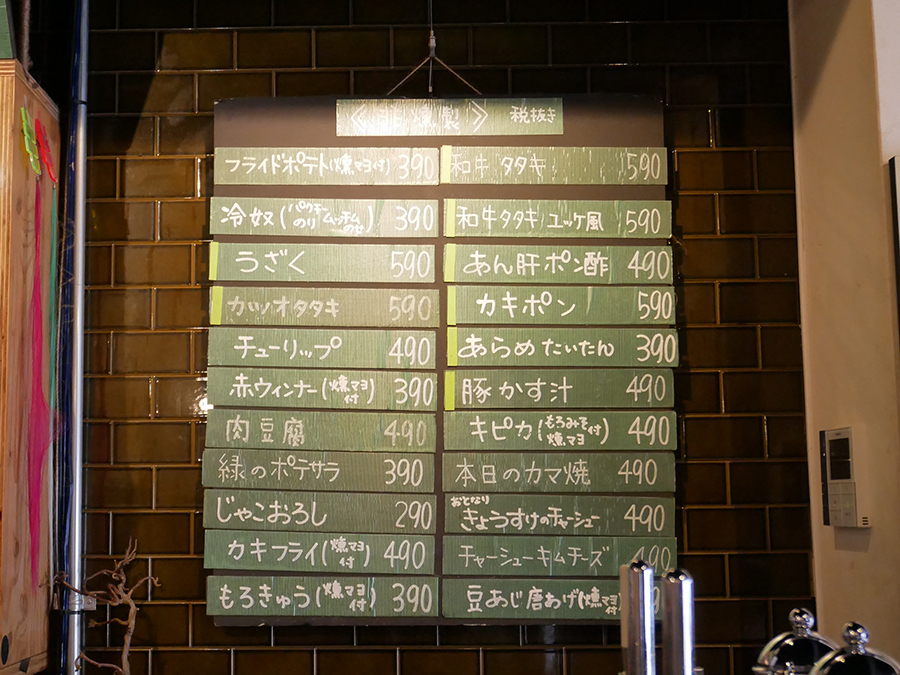 《 燻製 》 税抜き
フライドポテト(燻マヨ付) 390
冷奴(パクチーのりムッチムのせ) 390
うざく 590
カツオタタキ 590
チューリップ 490
赤ウィンナー(燻マヨ付) 390
肉豆腐 490
緑のポテサラ 390
じゃこおろし 290
カキフライ(燻マヨ付) 490
もろきゅう(燻マヨ付) 390
和牛タタキ 590
和牛タタキユッケ風 590
あん肝ポン酢 490
カキポン 590
あらめたいたん 390
豚かす汁 490
キピカ(もろみそ燻マヨ付) 490
本日のカマ焼 490
おとなりきょうすけのチャーシュー 490
チャーシューキムチーズ 490
豆あじ唐あげ(燻マヨ付)